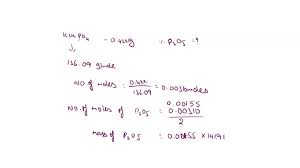 KH₂PO₄ - 0.422g % P₂O₅ ?
↓
136.09 g/mole
NO of moles = 0.422 / 136.09 = 0.0031 moles
NO. of moles of P₂O₅ = 0.00310 / 2 0.00155
mass of P₂O₅ = 0.00155 × 141.91